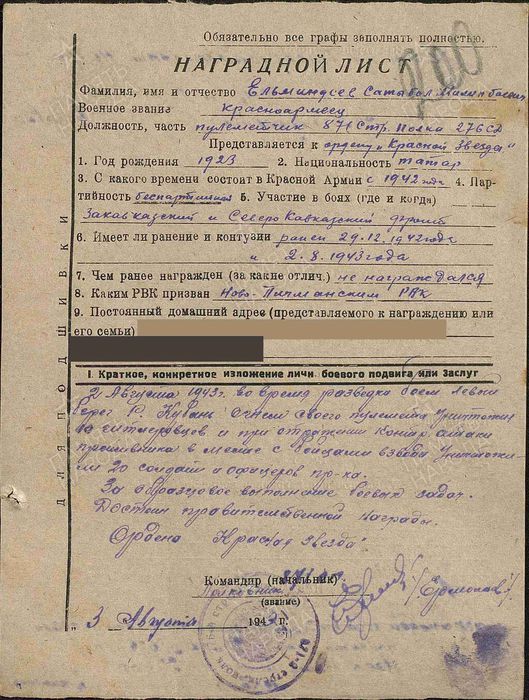 Обязательно все графы заполнять полностью.
200
НАГРАДНОЙ ЛИСТ
Фамилия, имя и отчество
Военное звание красноармеец
Должность, часть пулеметчик 871 Стр. Полка 276 СД
Представляется к ордену "Красной Звезда"
1. Год рождения 1923 2. Национальность татар
3. С какого времени состоит в Красной Армии с 1942 года 4. Пар-
тийность беспартийный 5. Участие в боях (где и когда)
Закавказский и Северо Кавказский фронт
6. Имеет ли ранение и контузии ранен 29.12.1942 года
и 2.8.1943 года
7. Чем ранее награжден (за какие отлич.) не награждался
8. Каким РВК призван Ново- РВК
9. Постоянный домашний адрес (представляемого к награждению или
его семьи)
I. Краткое, конкретное изложение личн. боевого подвига или заслуг
2 Августа 1943 г. во время разведка боем левый
берег р. Кубань огнем своего пулемета уничтожил
гитлеровцев и при отражении контр. атаки
противника в месте с бойцами взвода уничтожи-
ли 20 солдат и офицеров пр-ка.
За образцовое выполнение боевых задач.
Достоин правительственной награды.
Ордена "Красная Звезда"
Командир (начальник) 871 СП
Полковник
(звание)
3 Августа 194 г.
ДЛЯ ПОДШИВКИ